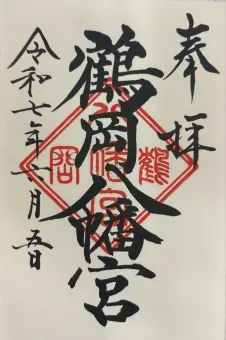 奉拝
鶴岡八幡宮
令和七年六月五日
鶴
八幡宮
岡